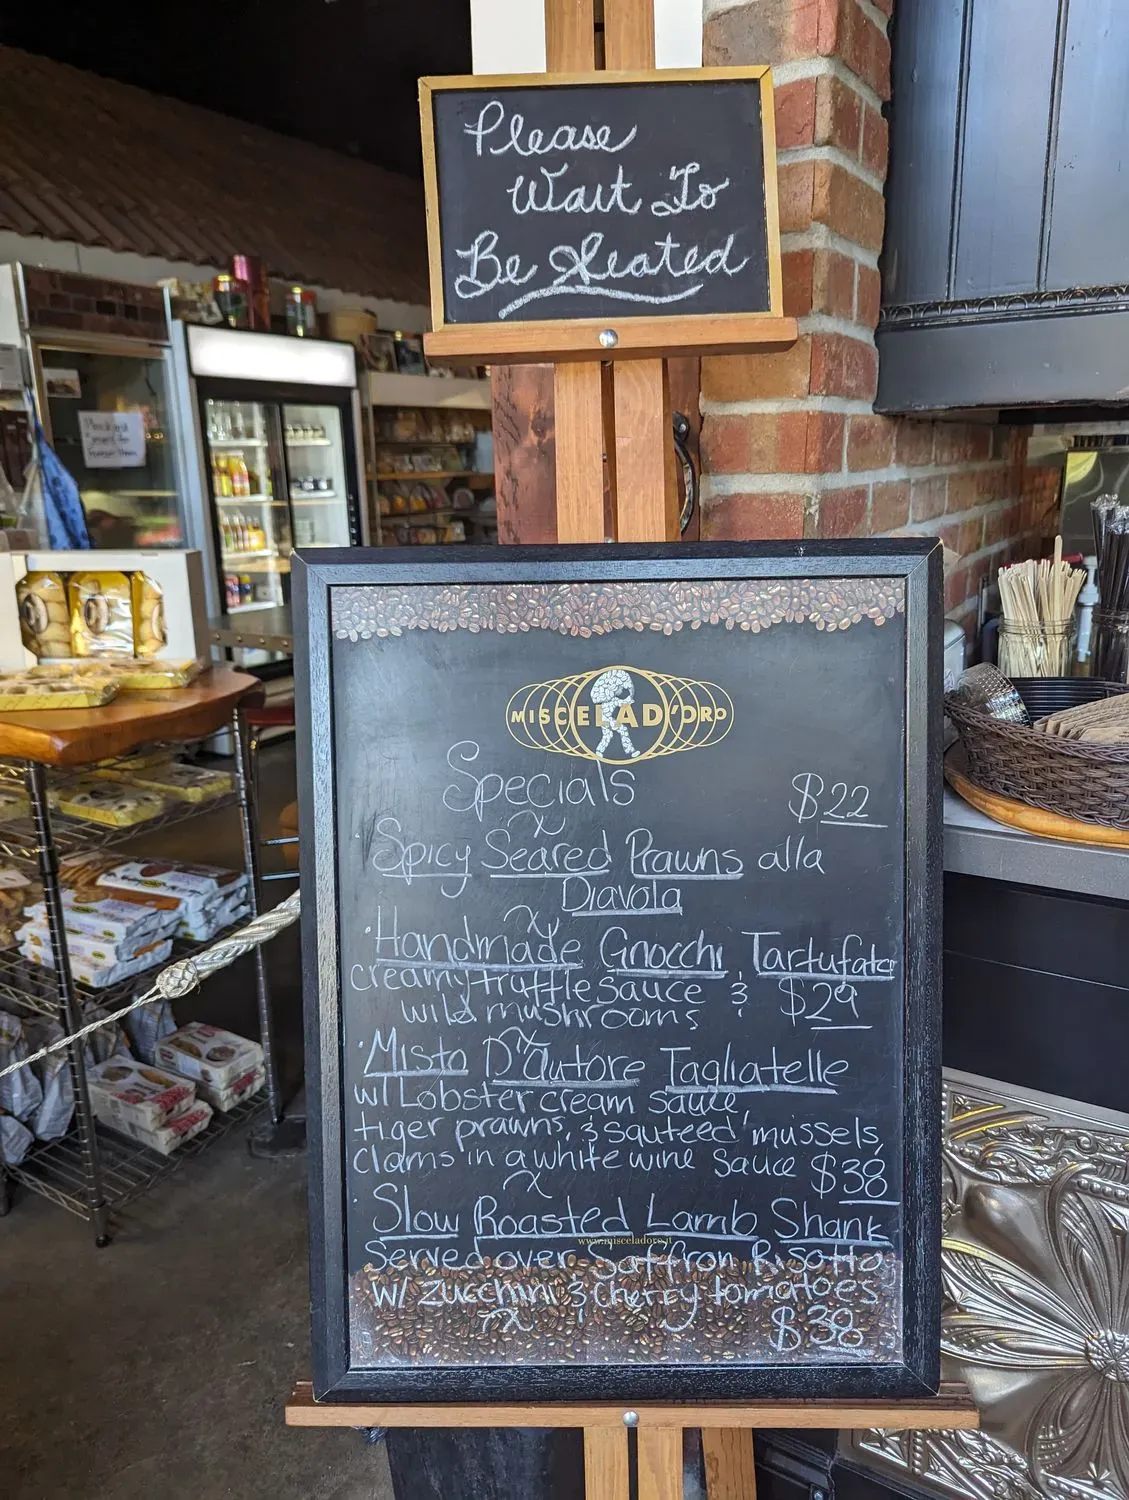 Please
Wait To
Be Seated
MISCELAD'ORO
Specials
$22
Spicy Seared Prawns alla
Diavola
Handmade Gnocchi Tartufata
creamy truffle sauce &
wild mushrooms $29
Misto D'autore Tagliatelle
w/ Lobster cream sauce,
tiger prawns, & sauteed mussels,
clams in a white wine sauce $38
Slow Roasted Lamb Shank
www.misceladoro.it
Served over Saffron Risotto
w/ zucchini & cherry tomatoes
$38